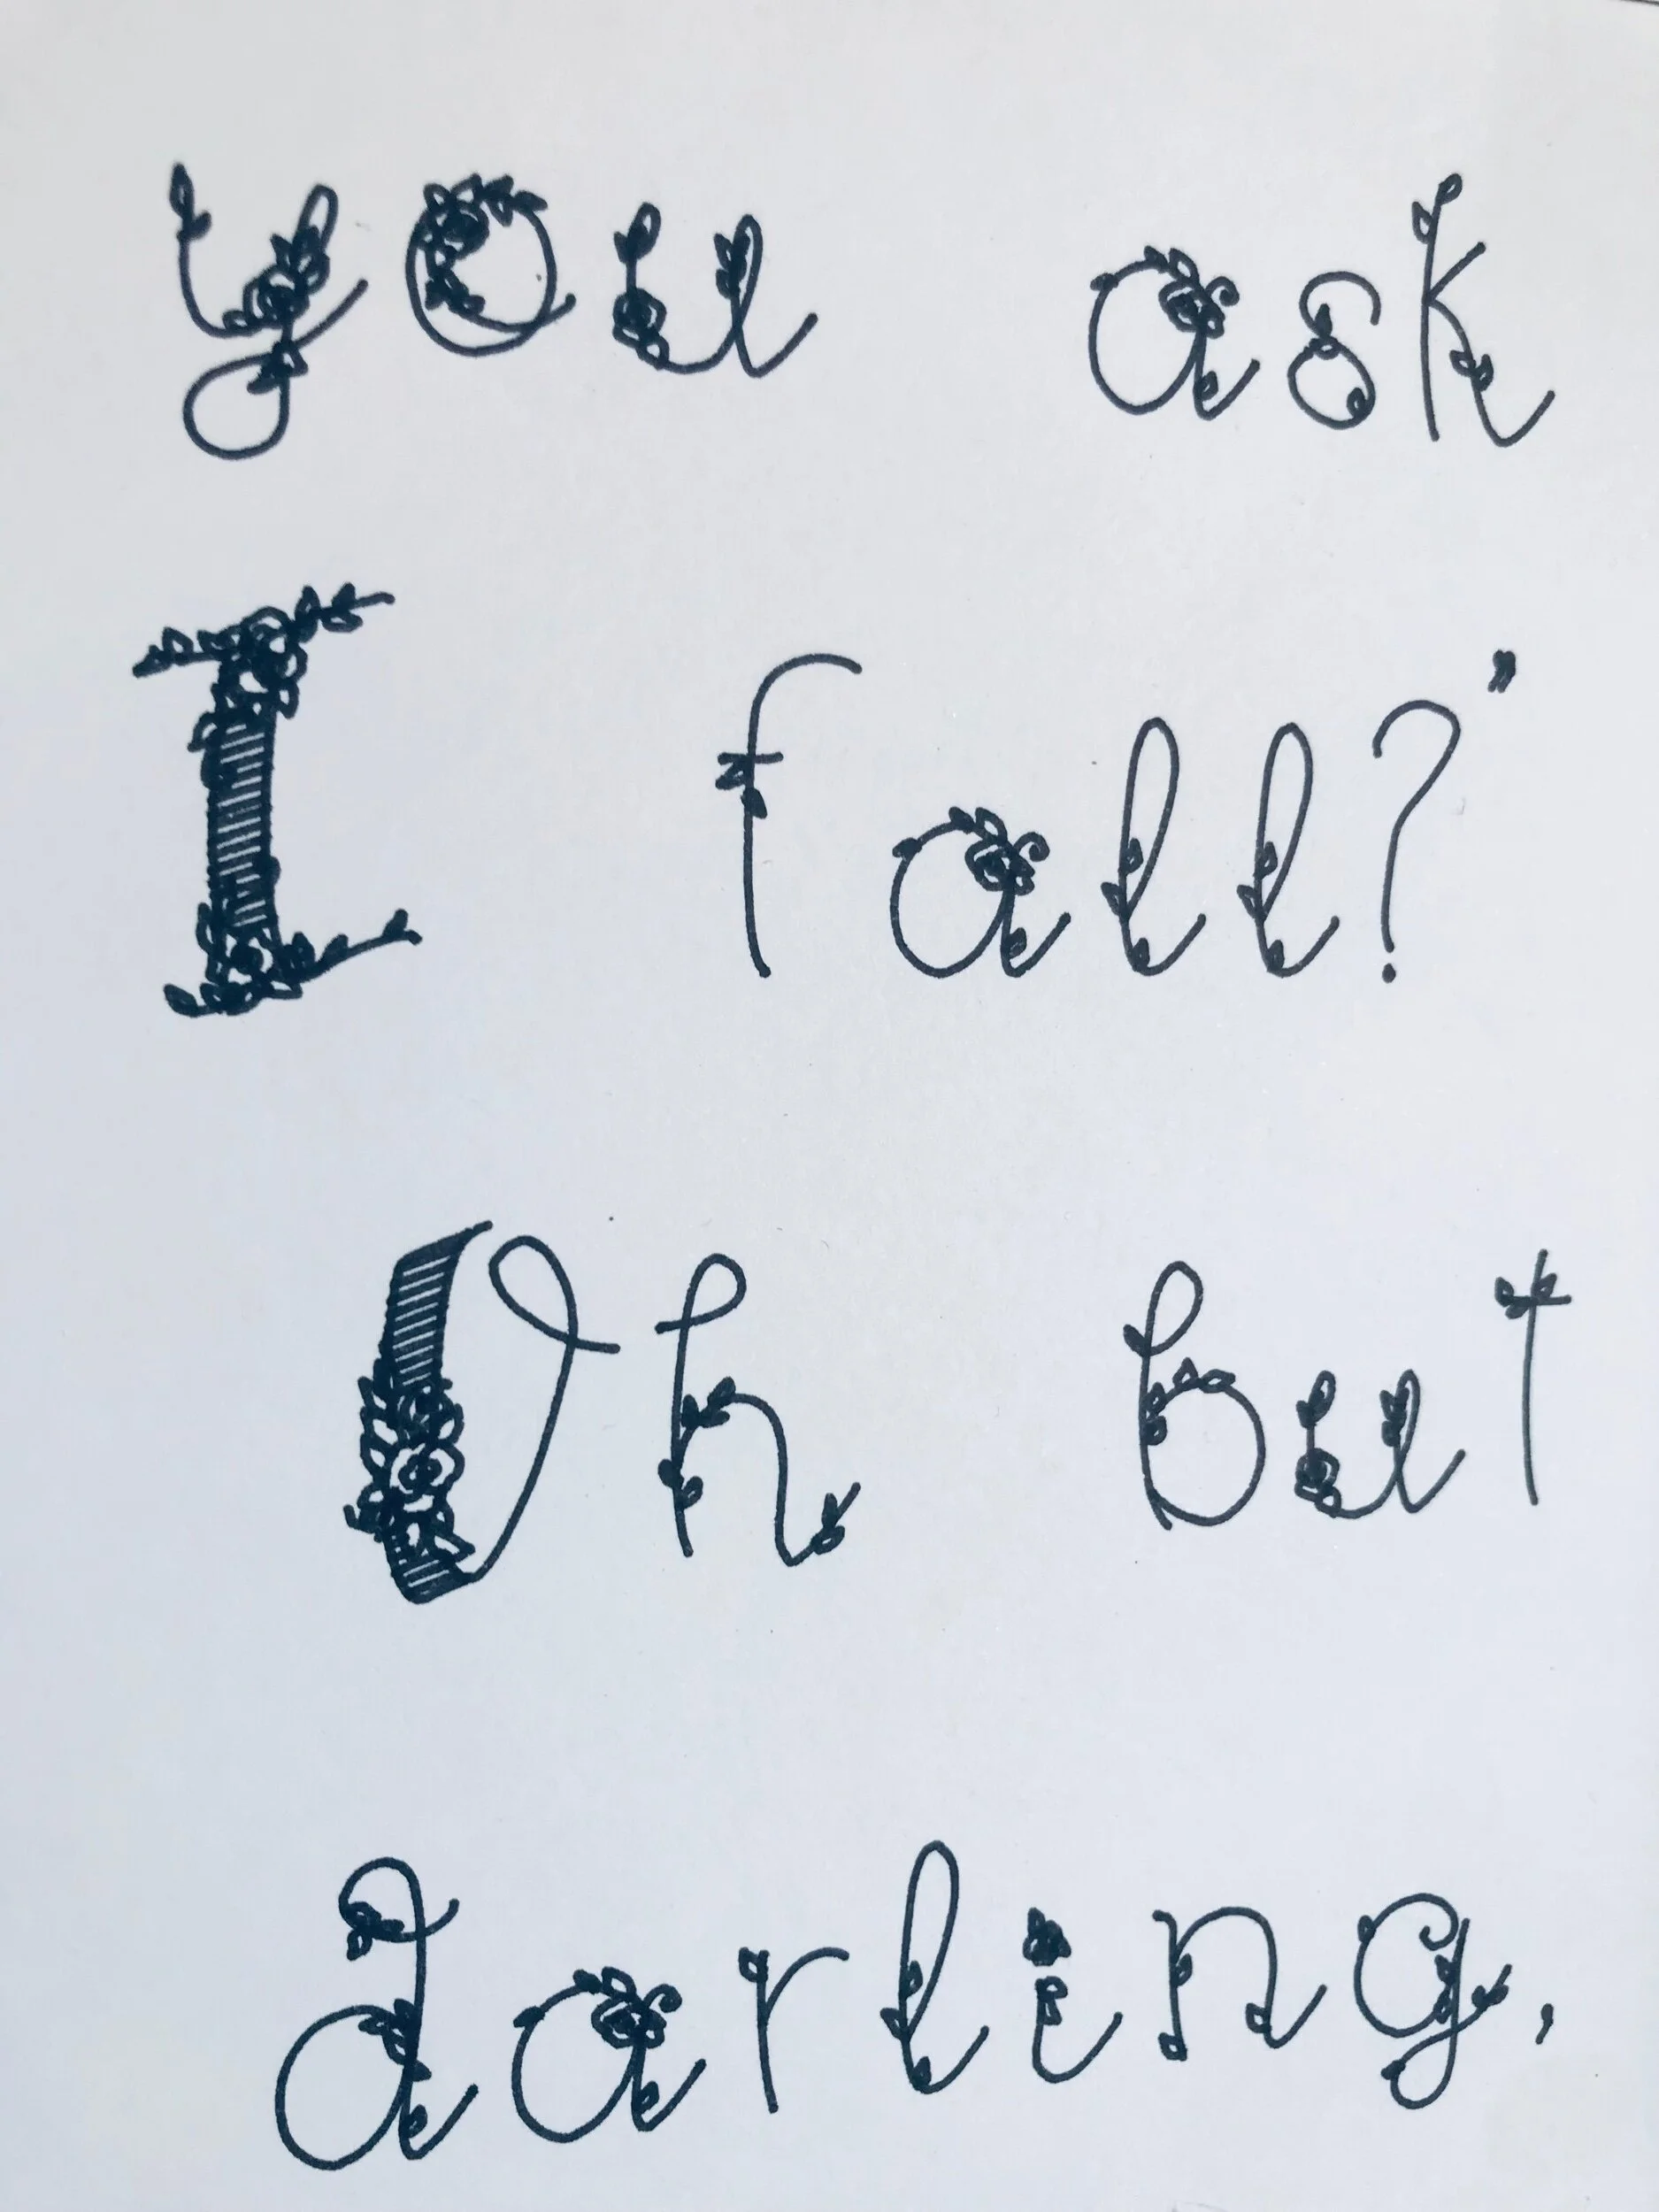 you ask
I fall?"
Oh but
darling,